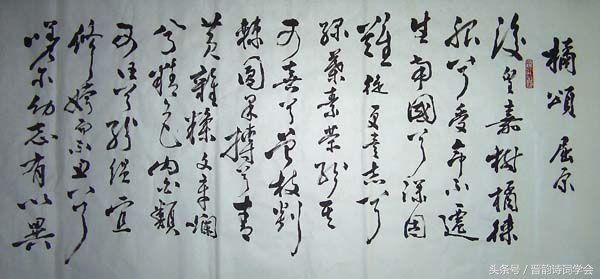 橘頌 屈原
後皇嘉樹橘徠
服兮受命不遷
生南國兮深固
難徙更壹志兮
綠葉素榮紛其
可喜兮曾枝剡
棘圓果摶兮青
黃雜糅文章爛
兮精色內白類
可任兮紛縕宜
修姱而不丑兮
嗟爾幼志有以異
头条号 / 晋韵诗词学会